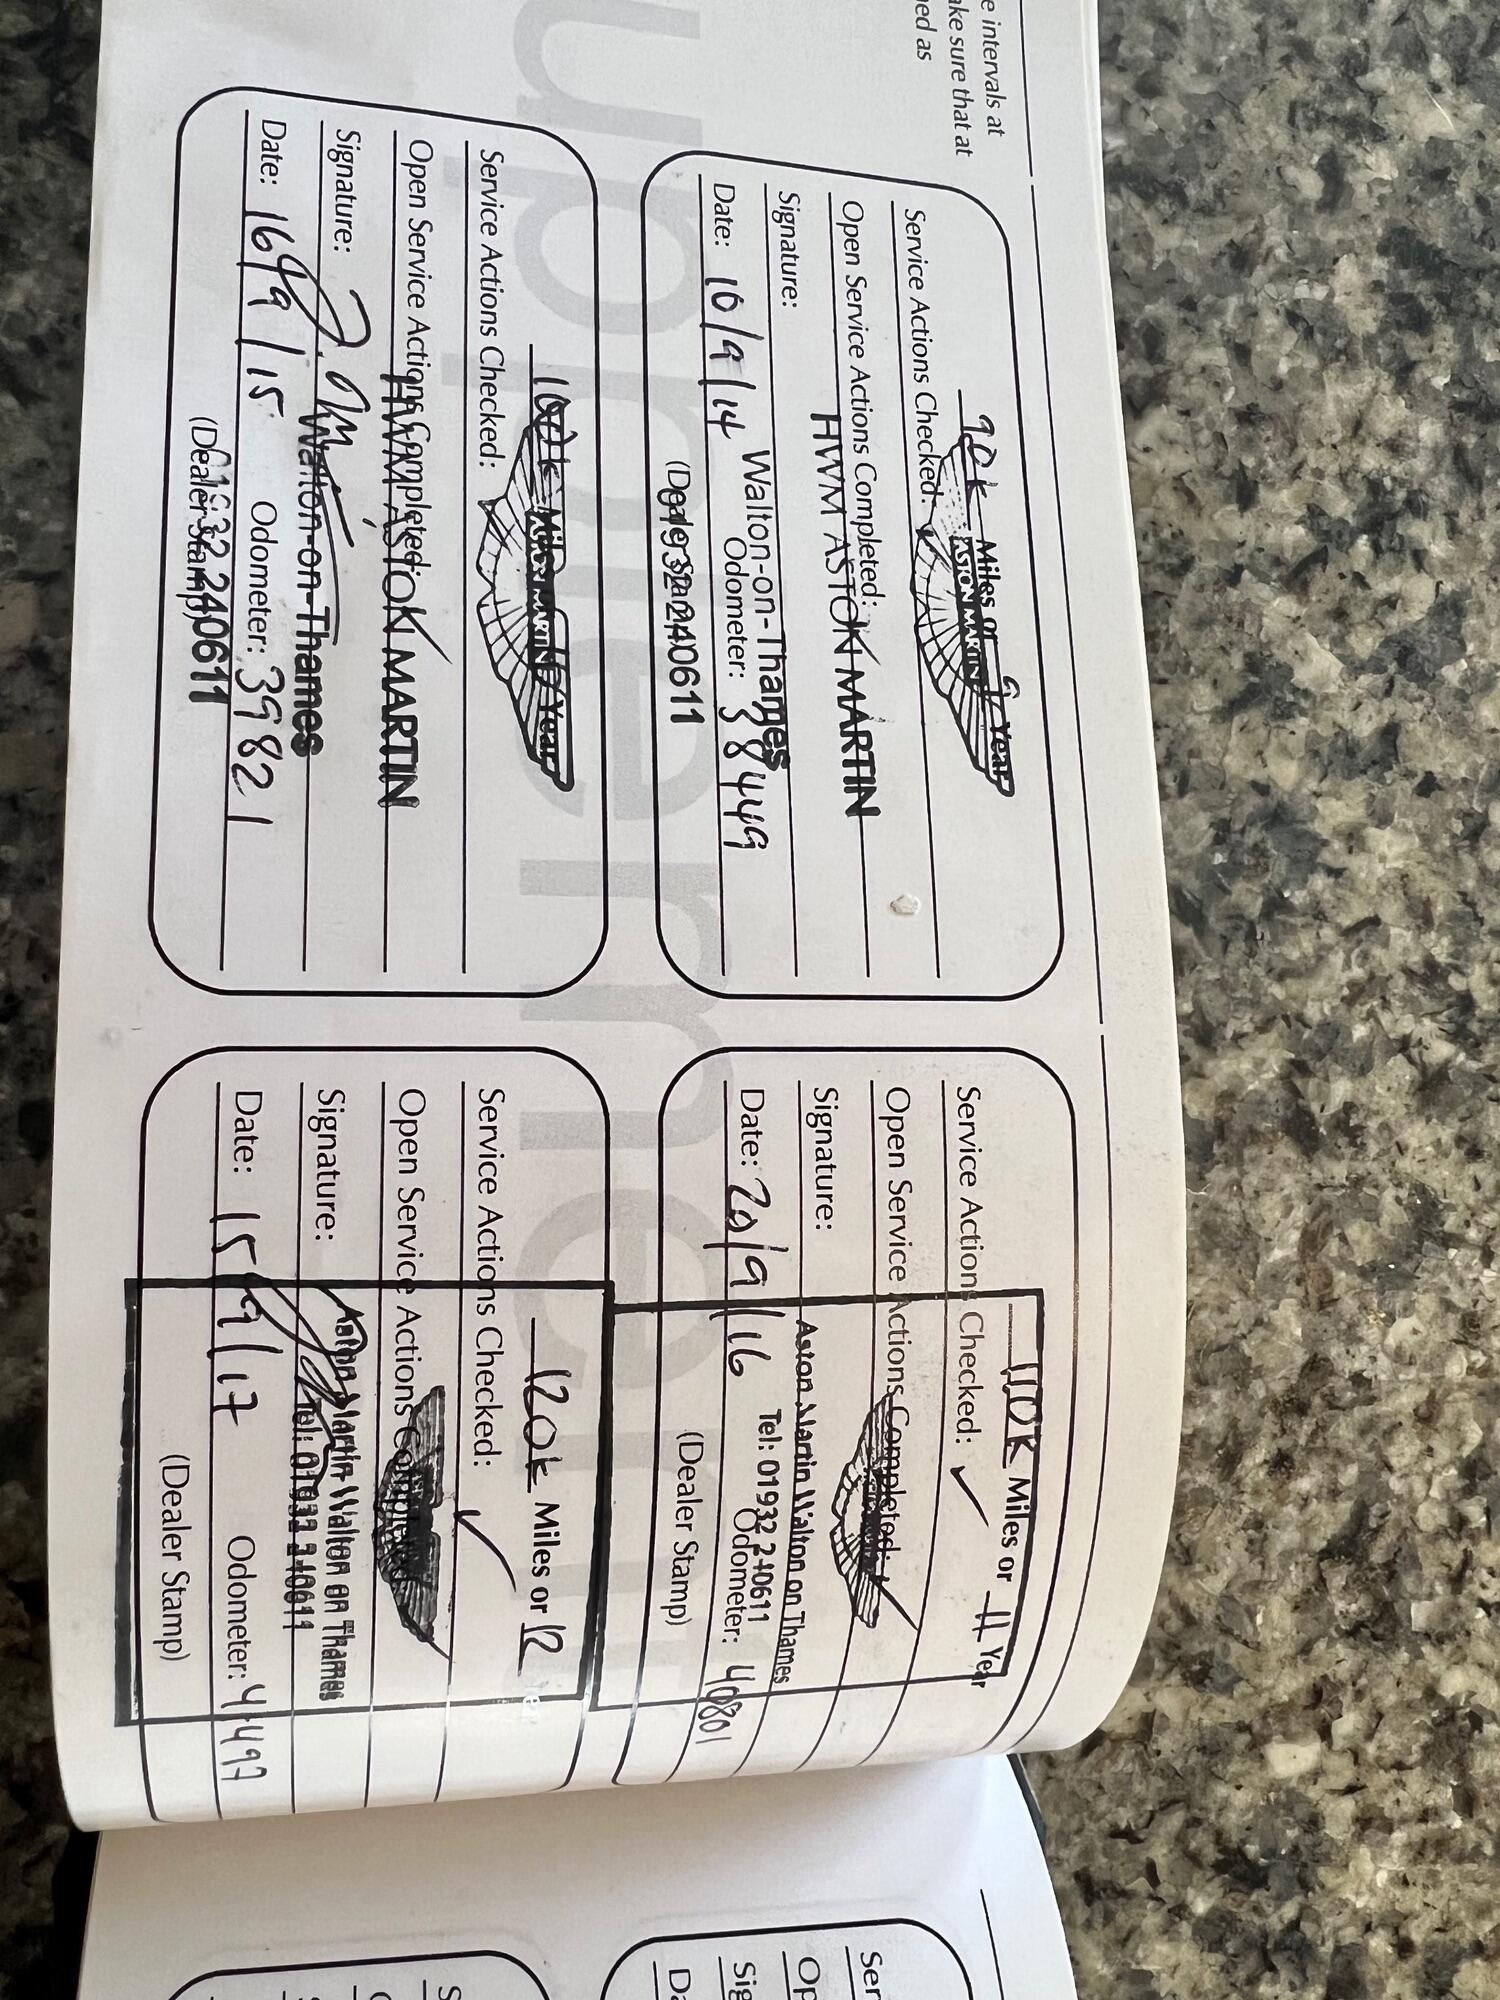 e intervals at
ake sure that at
ed as
90k Miles or 9 Year
ASTON MARTIN
Service Actions Checked:
Open Service Actions Completed:
HWM ASTON MARTIN
Signature:
Walton-on-Thames
Date: 10/9/14 Odometer: 38449
(Dealer Stamp)
01932 240611
100k Miles or Year
ASTON MARTIN
Service Actions Checked:
Open Service Actions Completed:
HWM ASTON MARTIN
Signature:
Walton-on-Thames
Date: 16/9/15 Odometer: 39821
(Dealer Stamp)
01932 240611
110K Miles or 11 Year
Service Actions Checked: ✓
Open Service Actions Completed: ✓
Signature:
Aston Martin Walton on Thames
Tel: 01932 240611
Date: 20/9/16 Odometer: 40801
(Dealer Stamp)
120k Miles or 12
Service Actions Checked: ✓
Open Service Actions Completed
Signature:
Aston Martin Walton on Thames
Tel: 01932 240611
Date: 15/9/17 Odometer: 41497
(Dealer Stamp)
Ser
Op
Sig
Da
S
upplement